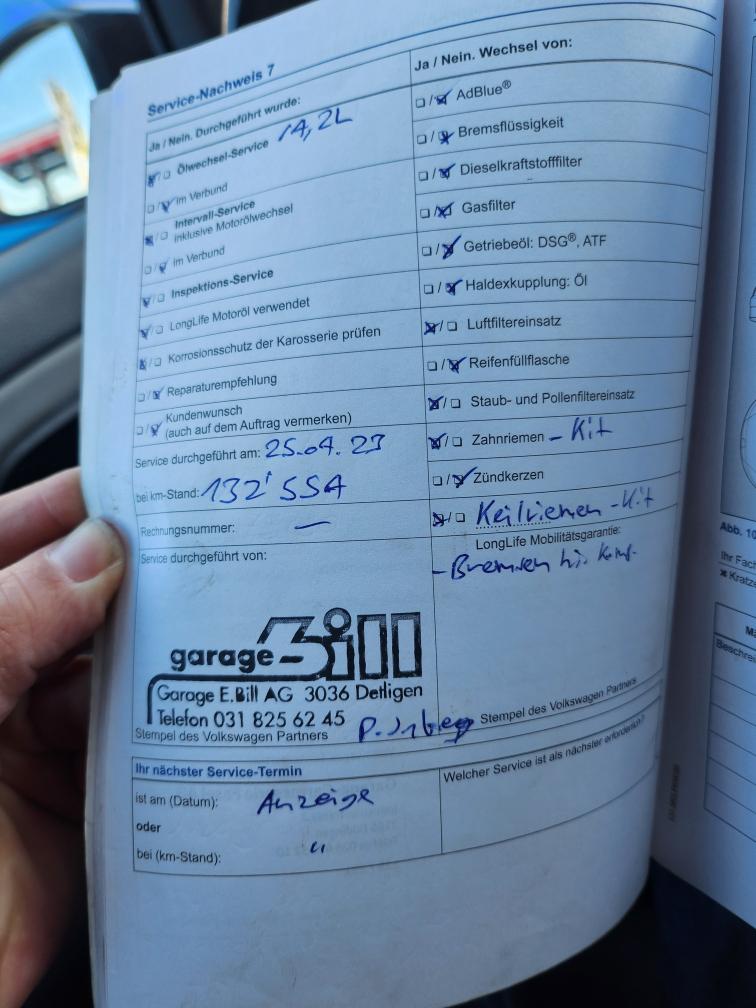 Service-Nachweis 7
Ja / Nein. Durchgeführt wurde:
Ölwechsel-Service 14,2L
im Verbund
Intervall-Service
inklusive Motorölwechsel
im Verbund
Inspektions-Service
LongLife Motoröl verwendet
Korrosionsschutz der Karosserie prüfen
Reparaturempfehlung
Kundenwunsch
(auch auf dem Auftrag vermerken)
Service durchgeführt am: 25.04.23
bei km-Stand: 132'554
Rechnungsnummer: —
Service durchgeführt von:
garage Bill
Garage E.Bill AG 3036 Detligen
Telefon 031 825 62 45
Stempel des Volkswagen Partners
Ja / Nein. Wechsel von:
AdBlue®
Bremsflüssigkeit
Dieselkraftstofffilter
Gasfilter
Getriebeöl: DSG®, ATF
Haldexkupplung: Öl
Luftfiltereinsatz
Reifenfüllflasche
Staub- und Pollenfiltereinsatz
Zahnriemen - Kit
Zündkerzen
Keilriemen - Kit
LongLife Mobilitätsgarantie:
- Bremsen hi.
Stempel des Volkswagen Partners
Ihr nächster Service-Termin
ist am (Datum): Anzeige
oder
bei (km-Stand): "
Welcher Service ist als nächster erforderlich?
Abb. 10
Ihr Fach
Kratz
Beschrei